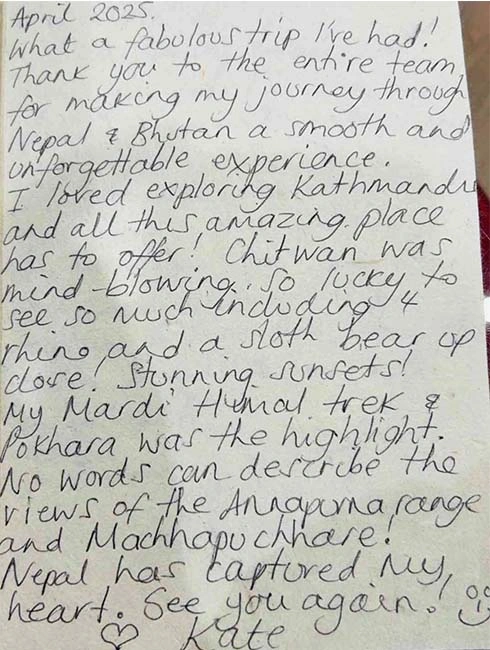 April 2025.
What a fabulous trip I've had!
Thank you to the entire team
for making my journey through
Nepal & Bhutan a smooth and
unforgettable experience.
I loved exploring Kathmandu
and all this amazing place
has to offer! Chitwan was
mind-blowing. So lucky to
see so much including 4
rhino and a sloth bear up
close! Stunning sunsets!
My Mardi Himal trek &
Pokhara was the highlight.
No words can describe the
views of the Annapurna range
and Machhapuchhare!
Nepal has captured my
heart. See you again!
Kate